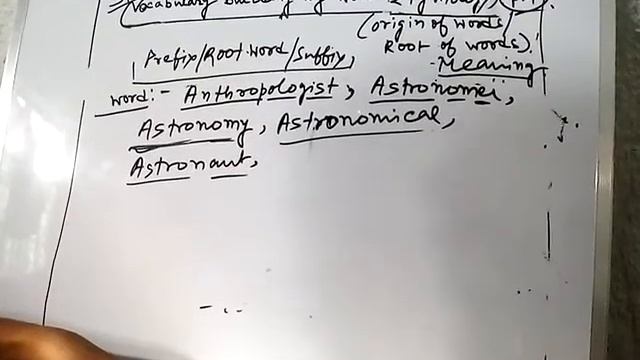 Vocabulary Building
(origin of words/
Prefix/Root word/Suffix, Root of words).
- Meaning
word:- Anthropologist, Astronomer,
Astronomy, Astronomical,
Astronaut,